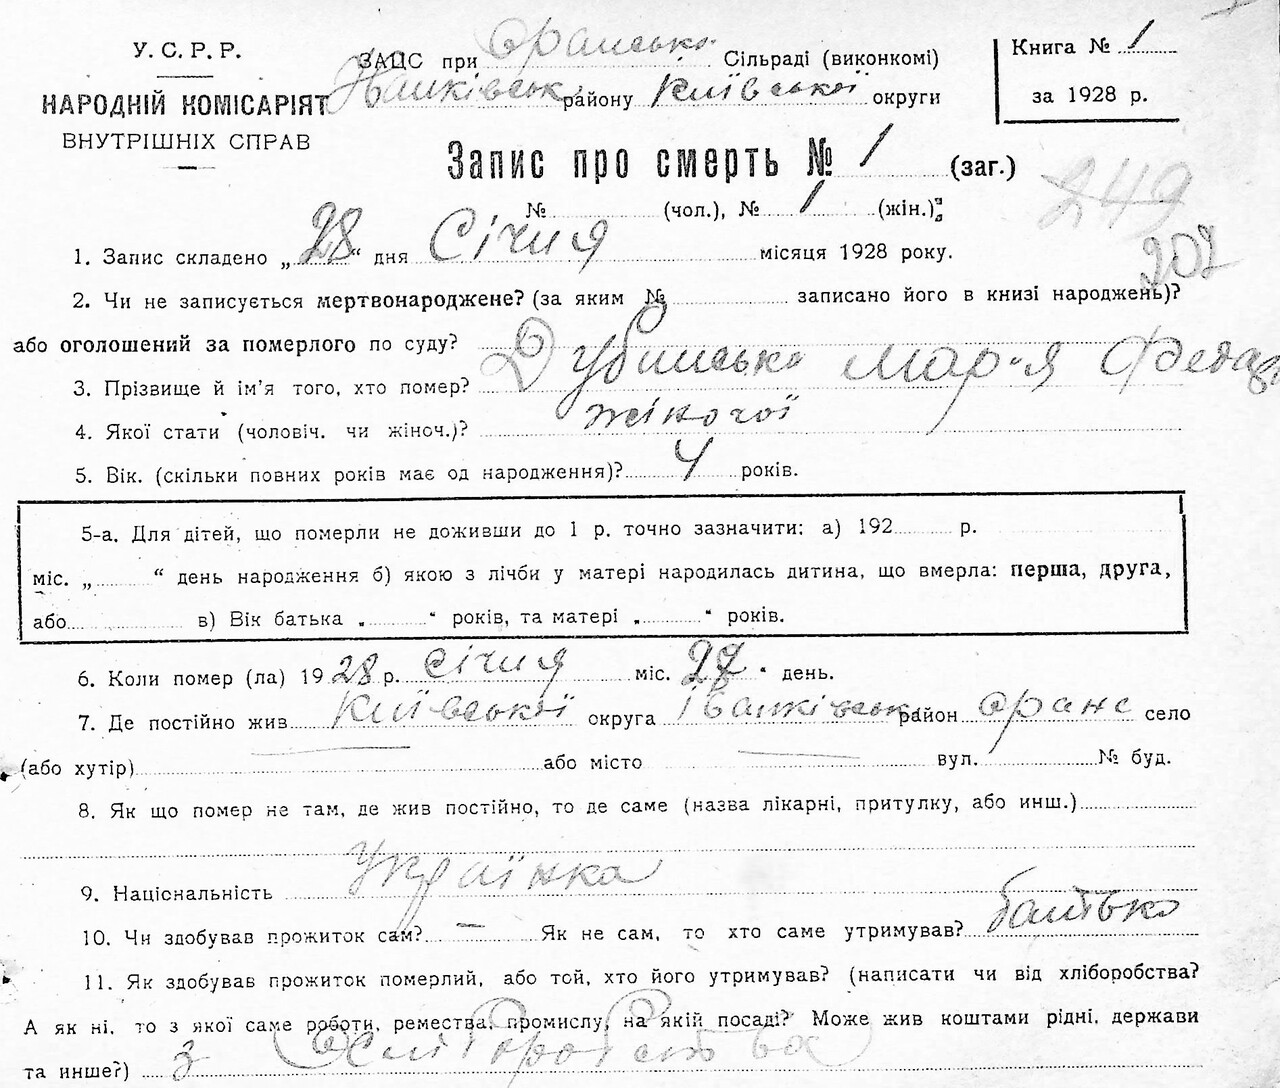 У. С. Р. Р.
НАРОДНІЙ КОМІСАРІЯТ
ВНУТРІШНІХ СПРАВ
ЗАЦС при Оранській Сільраді (виконкомі)
Іванківськ. району Київської округи
Книга № 1
за 1928 р.
Запис про смерть № 1 (заг.)
№ (чол.), № 1 (жін.)
249
207
1. Запис складено „28“ дня Січня місяця 1928 року.
2. Чи не записується мертвонароджене? (за яким № записано його в книзі народжень)?
або оголошений за померлого по суду?
3. Прізвище й ім’я того, хто помер? Дубинська Мар'я Федор
4. Якої стати (чоловіч. чи жіноч.)? жіночої
5. Вік. (скільки повних років має од народження)? 4 років.
5-а. Для дітей, що померли не доживши до 1 р. точно зазначити: а) 192 р.
міс. „ “ день народження б) якою з лічби у матері народилась дитина, що вмерла: перша, друга,
або в) Вік батька „ “ років, та матері „ “ років.
6. Коли помер (ла) 1928 р. січня міс. 27 день.
7. Де постійно жив Київської округа Іванківськ. район Оране село
(або хутір) або місто вул. № буд.
8. Як що помер не там, де жив постійно, то де саме (назва лікарні, притулку, або инш.)
9. Національність Українка
10. Чи здобував прожиток сам? — Як не сам, то хто саме утримував? батько
11. Як здобував прожиток померлий, або той, хто його утримував? (написати чи від хліборобства?
А як ні, то з якої саме роботи, ремества, промислу, на якій посаді? Може жив коштами рідні, держави
та инше?) з